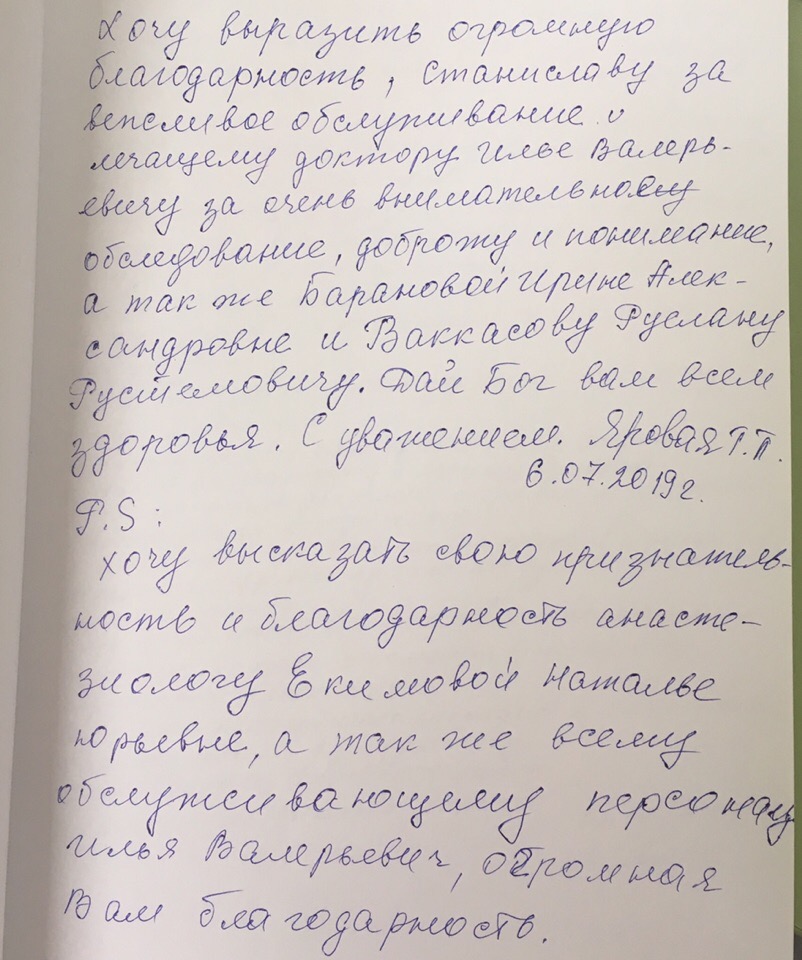 Хочу выразить огромную
благодарность, Станиславу за
вежливое обслуживание и
лечащему доктору Илье Валерь-
евичу за очень внимательное
обследование, доброту и понимание,
а так же Барановой Ирине Алек-
сандровне и Ваккасову Руслану
Рустемовичу. Дай Бог вам всем
здоровья. С уважением. Яровая Г.П.
6.07.2019г.
P.S:
хочу высказать свою признатель-
ность и благодарность анасте-
зиологу Екимовой Наталье
Юрьевне, а так же всему
обслуживающему персоналу
Илья Валерьевич, огромная
Вам благодарность.